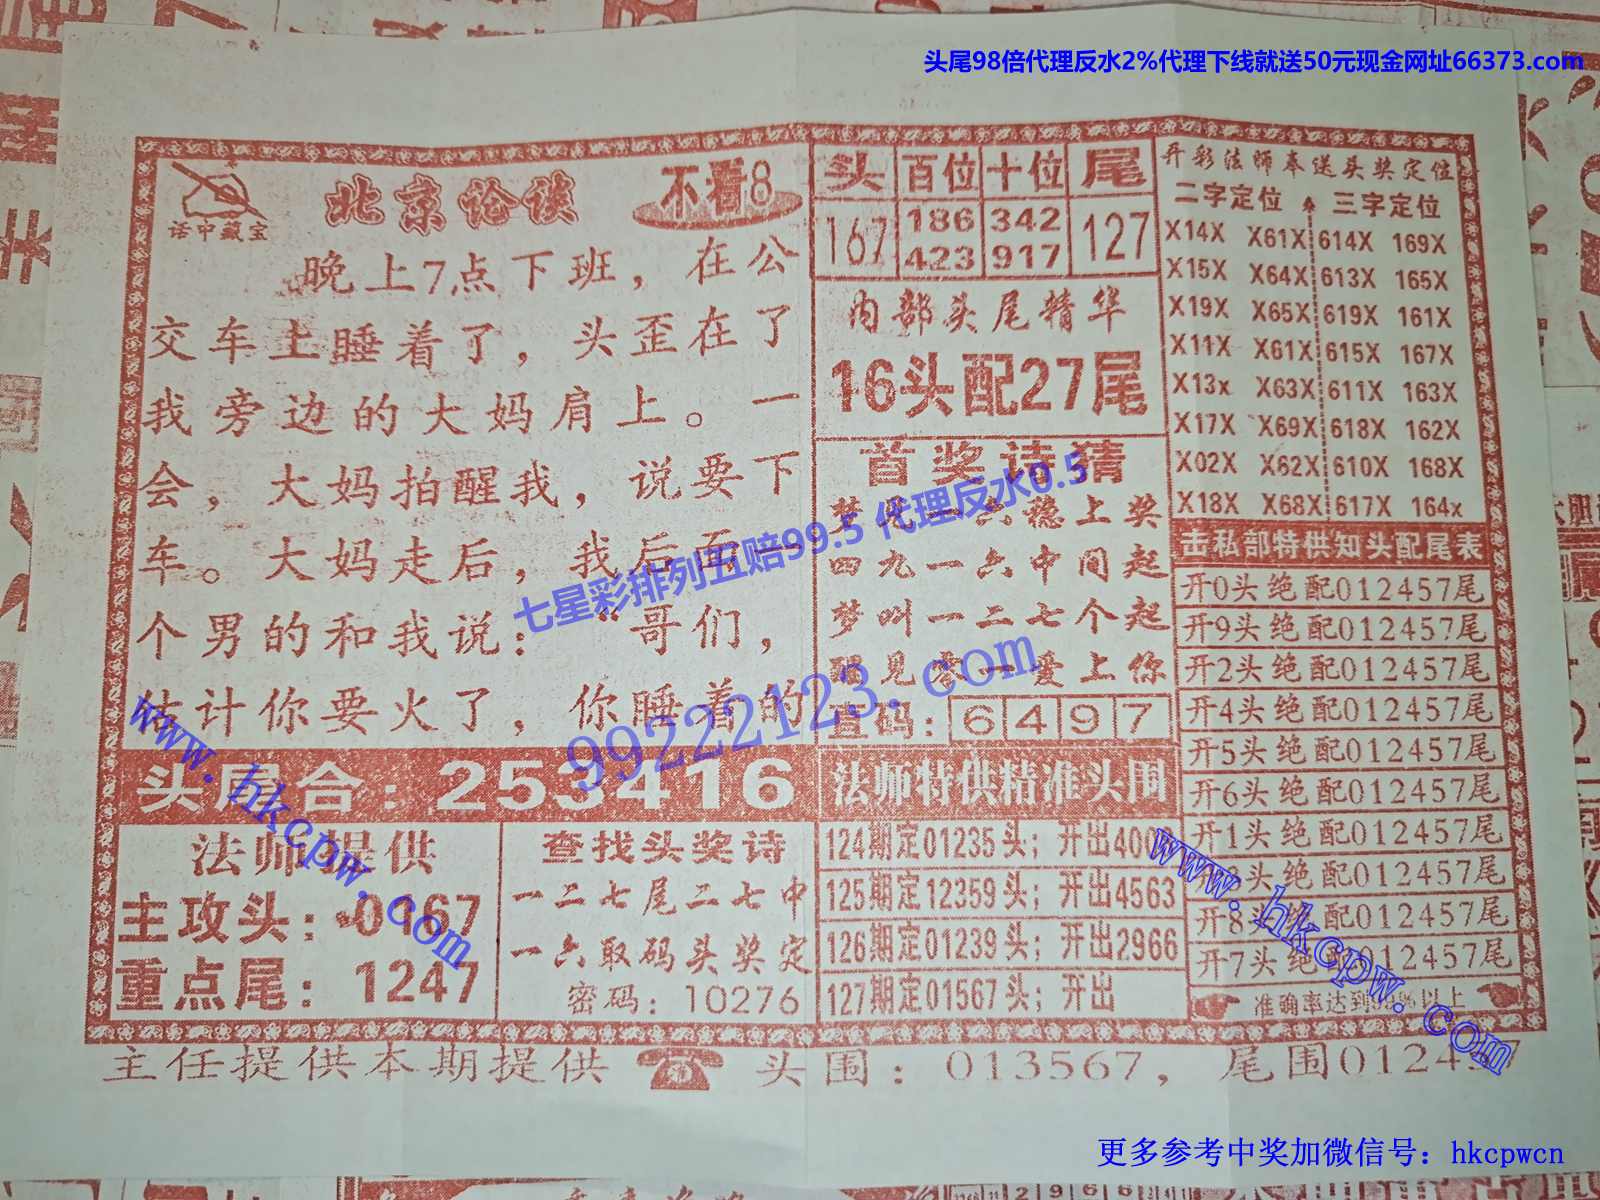 头尾98倍代理反水2%代理下线就送50元现金网址66373.com
话中藏宝
北京论谈
不看8
晚上7点下班，在公
交车上睡着了，头歪在了
我旁边的大妈肩上。一
会，大妈拍醒我，说要下
车。大妈走后，我后面一
个男的和我说："哥们，
估计你要火了，你睡着的
头尾合：253416
法师提供
主攻头：0167
重点尾：1247
查找头奖诗
一二七尾二七中
一六取码头奖定
密码：10276
头 百位 十位 尾
167 186 342 127
423 917
内部头尾精华
16头配27尾
首奖诗猜
梦说一六稳上奖
四九一六中间起
梦叫一二七个起
醒见零一爱上你
直码：6497
法师特供精准头围
124期定01235头；开出400
125期定12359头；开出4563
126期定01239头；开出2966
127期定01567头；开出
开彩法师奉送头奖定位
二字定位 三字定位
X14X X61X 614X 169X
X15X X64X 613X 165X
X19X X65X 619X 161X
X11X X61X 615X 167X
X13x X63X 611X 163X
X17X X69X 618X 162X
X02X X62X 610X 168X
X18X X68X 617X 164x
击私部特供知头配尾表
开0头绝配012457尾
开9头绝配012457尾
开2头绝配012457尾
开4头绝配012457尾
开5头绝配012457尾
开6头绝配012457尾
开1头绝配012457尾
头绝配012457尾
开8头绝配012457尾
开7头绝配012457尾
准确率达到99%以上
主任提供本期提供 头围：013567，尾围012457
七星彩排列五赔99.5 代理反水0.5
99222123.com
www.hkcpw.com
www.hkcpw.com
更多参考中奖加微信号：hkcpwcn